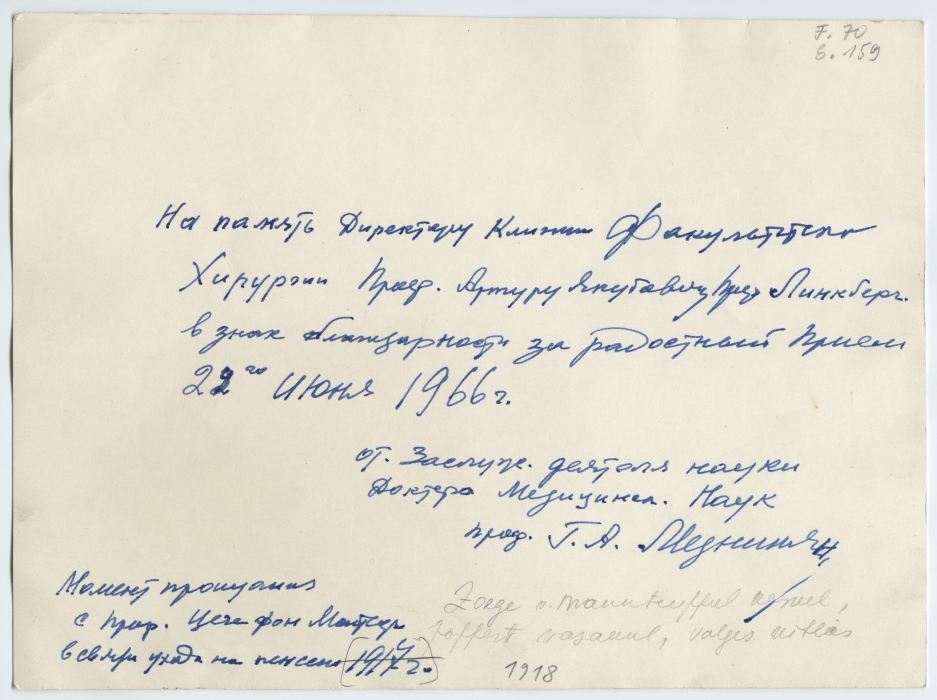 F. 70
S. 159
На память Директору Клиники Факультетской
Хирургии Проф. Артуру Якубовичу Линкберг.
в знак благодарности за радостный прием
22го Июня 1966 г.
от Заслуж. деятеля науки
Доктора Медицинск. Наук
проф. Г. А. Меднинян
Момент прощания
с проф. Цеге фон
в связи ухода на пенсию 1917 г.
Zoege v. Manteuffel
valges kitlis
1918